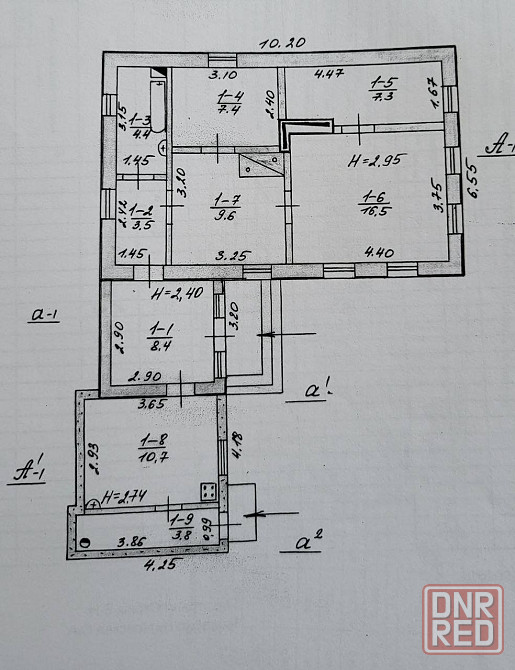 10.20
3.10
4.47
1-4
7.4
2.40
1-5
7.3
1.67
3.15
1-3
4.4
1.45
H=2,95
A-1
6.55
3.20
1-7
9.6
1-6
16,5
3.75
2.42
1-2
3,5
1.45
3.25
4.40
H=2,40
a-1
2.90
1-1
8,4
3.20
2.90
3,65
a¹
2.93
1-8
10,7
4.18
A¹-1
H=2,74
1-9
3,8
0.99
3.86
4.25
a²
DNR
RED